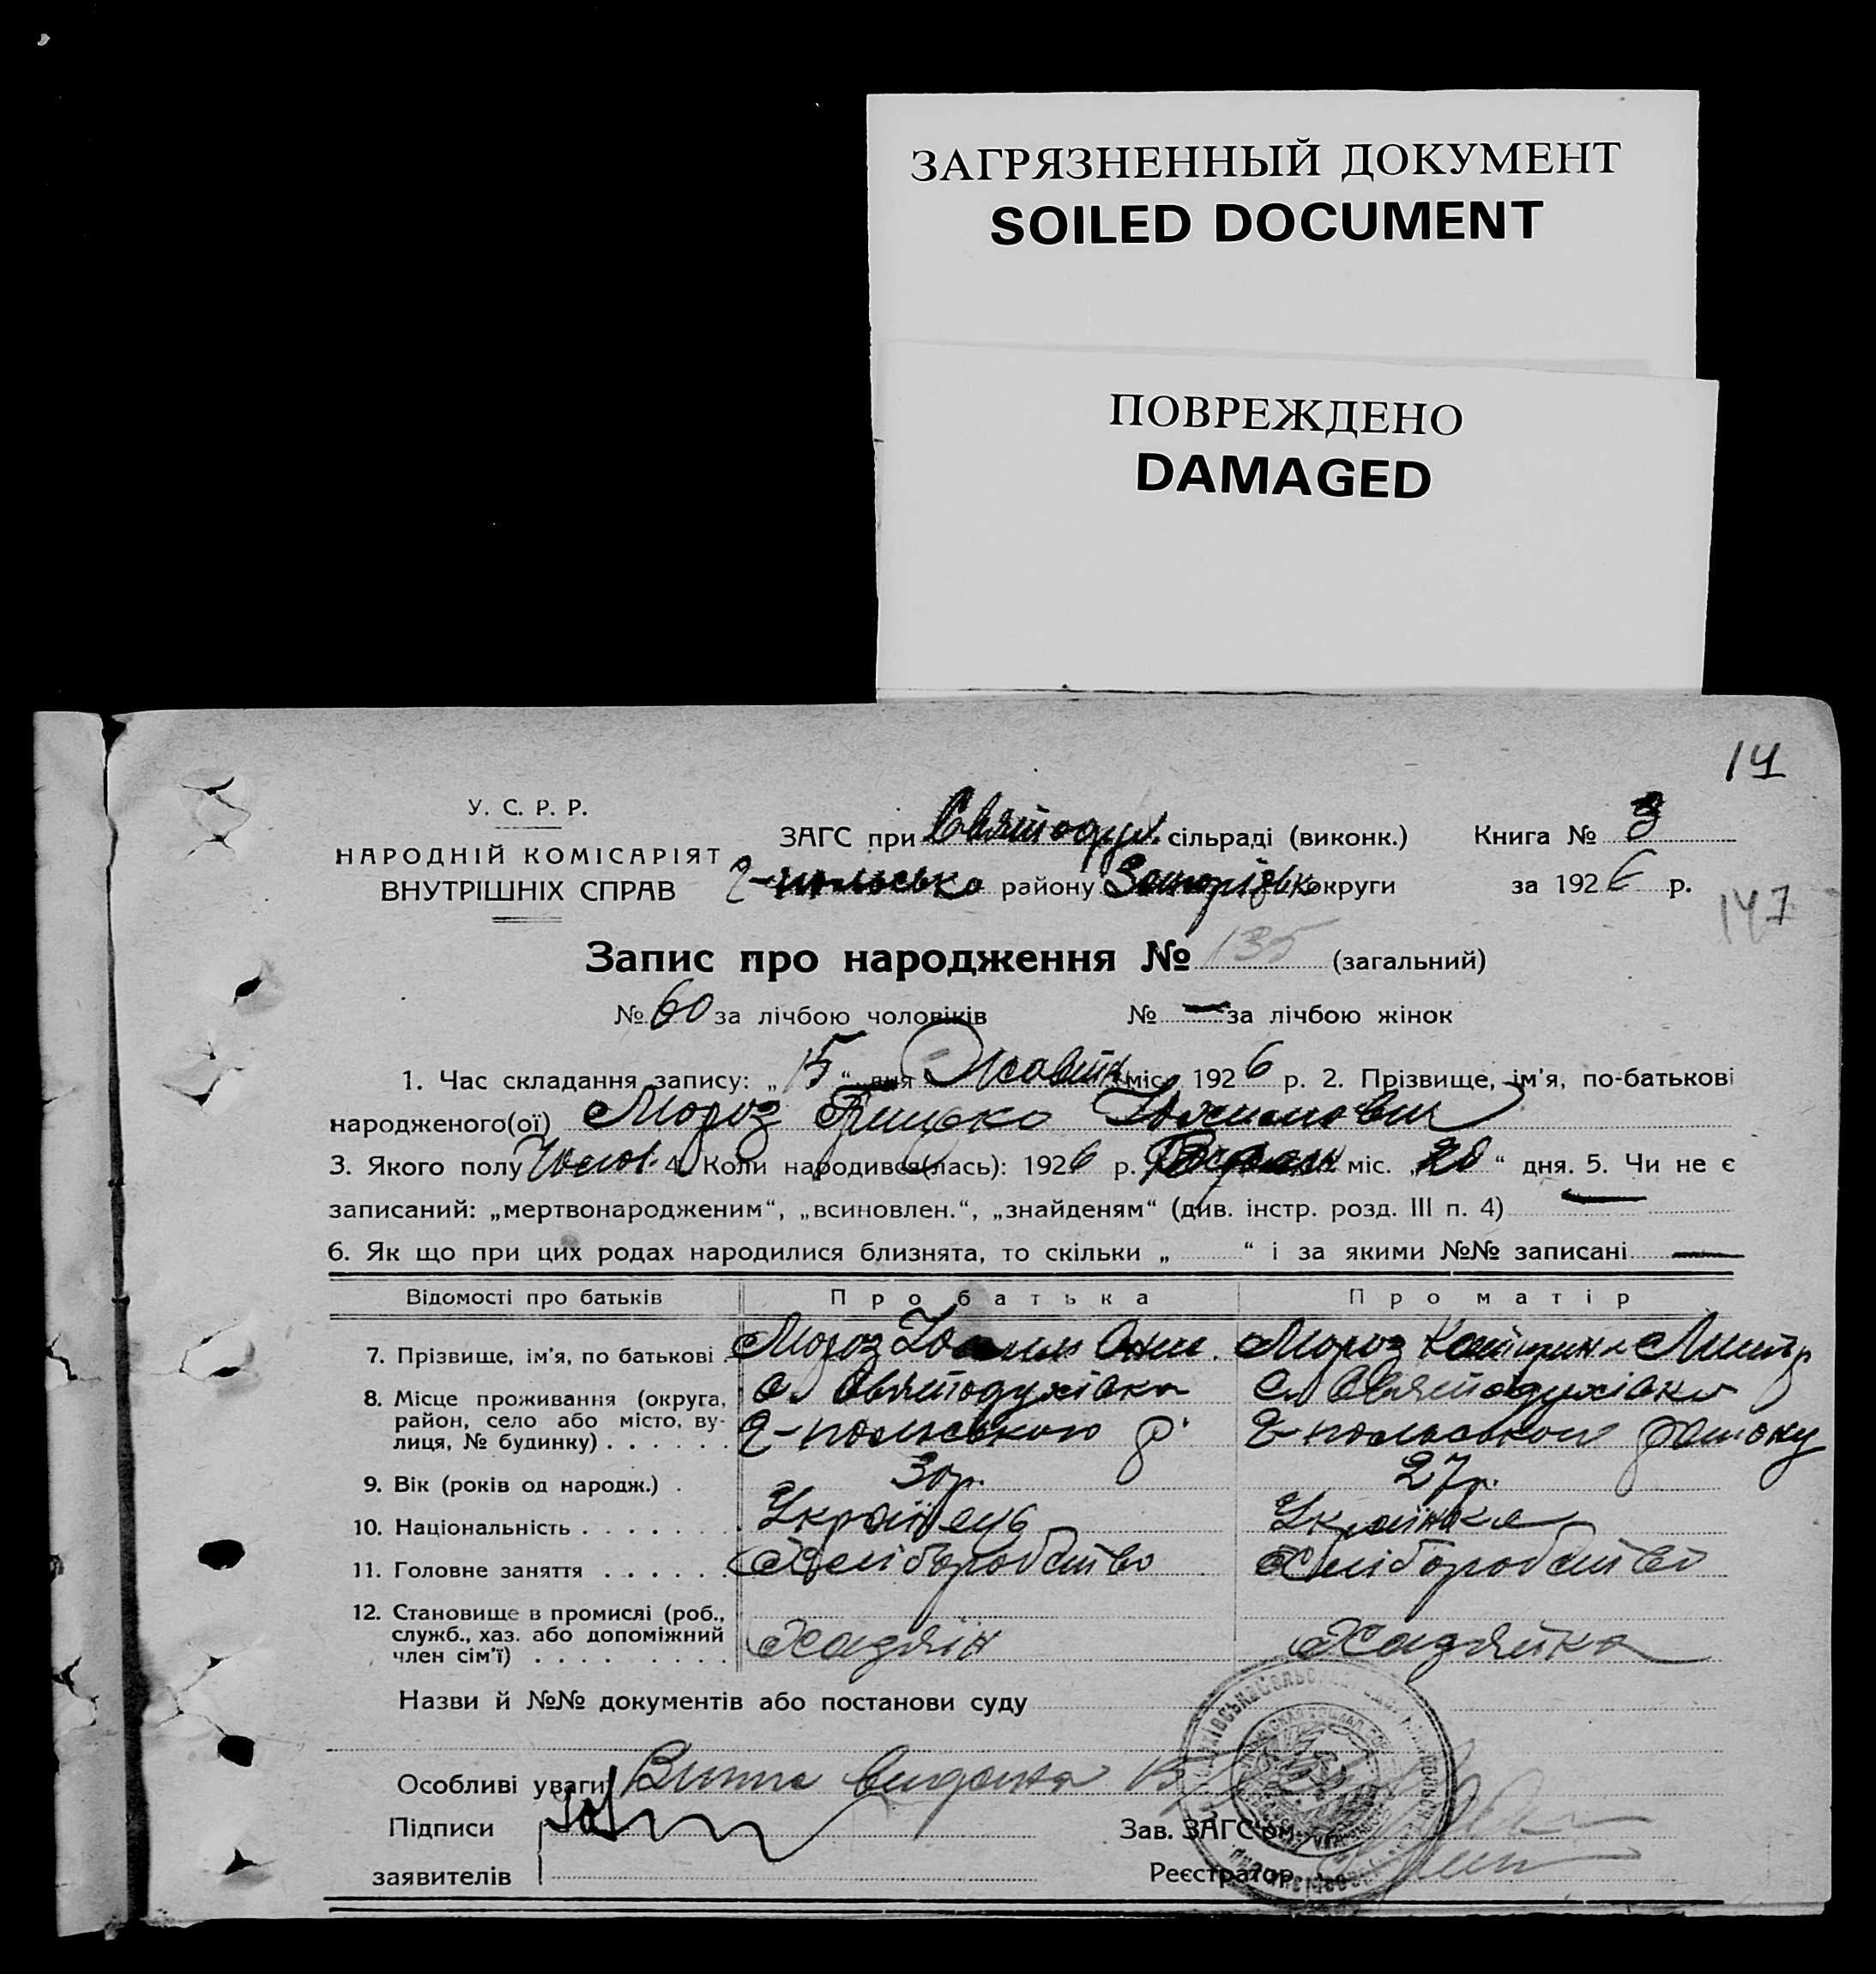 ЗАГРЯЗНЕННЫЙ ДОКУМЕНТ
SOILED DOCUMENT
ПОВРЕЖДЕНО
DAMAGED
14
У. С. Р. Р.
НАРОДНІЙ КОМІСАРІЯТ
ВНУТРІШНІХ СПРАВ
ЗАГС при Святодух. сільраді (виконк.) Книга № 3
району округи за 1926 р.
147
Запис про народження № 135 (загальний)
№ 60 за лічбою чоловіків № — за лічбою жінок
1. Час складання запису: „15“ дня Жовтн міс. 1926 р. 2. Прізвище, ім’я, по-батькові
народженого(ої) Мороз Грицько
3. Якого полу Чолов. 4. Коли народився(лась): 1926 р. міс. „20“ дня. 5. Чи не є
записаний: „мертвонародженим“, „всиновлен.“, „знайденям“ (див. інстр. розд. III п. 4) —
6. Як що при цих родах народилися близнята, то скільки „ “ і за якими №№ записані —
Відомості про батьків Про батька Про матір
7. Прізвище, ім’я, по батькові Мороз Мороз Катерина
8. Місце проживання (округа, район, село або місто, вулиця, № будинку) с. Святодухівка с. Святодухівка
Г-польського р. Г-польського району
9. Вік (років од народж.) 30р. 27р.
10. Національність Українець Українка
11. Головне заняття Хліборобство Хліборобство
12. Становище в промислі (роб., служб., хаз. або допоміжний член сім’ї) Хазяїн Хазяйка
Назви й №№ документів або постанови суду
Особливі уваги Видана
Підписи
заявителів
Зав. ЗАГС’ом
Реєстратор